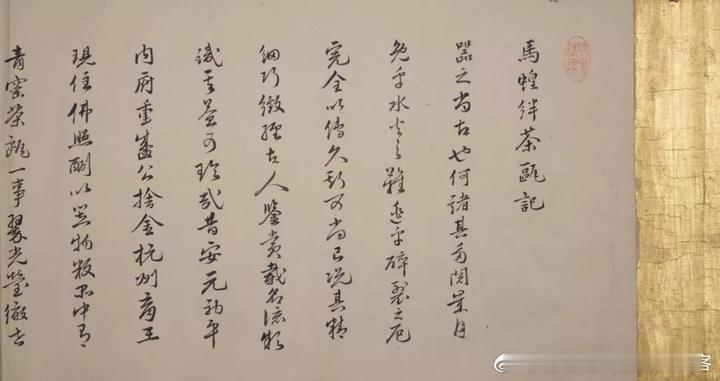 馬蝗絆茶甌記
器之尚古也何諸其多閱歲月
免乎水火之難逃乎碎裂之厄
完全以傳久斯可尚已況其精
細巧緻經古人鑒賞載名流題
識者益可珍哉昔安元初平
內府重盛公捨金杭州育王
現住佛照酬以器物數品中有
青窯茶甌一事翠光瑩徹世